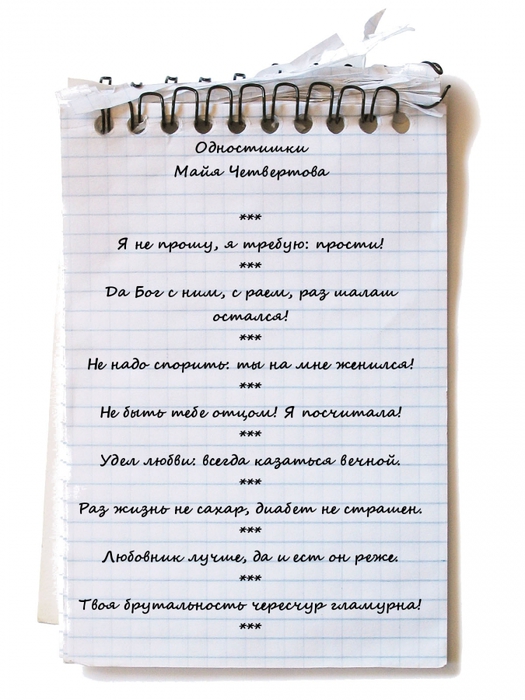 Одностишки
Майя Четвертова
***
Я не прошу, я требую: прости!
***
Да Бог с ним, с раем, раз шалаш
остался!
***
Не надо спорить: ты на мне женился!
***
Не быть тебе отцом! Я посчитала!
***
Удел любви: всегда казаться вечной.
***
Раз жизнь не сахар, диабет не страшен.
***
Любовник лучше, да и ест он реже.
***
Твоя брутальность чересчур гламурна!
***